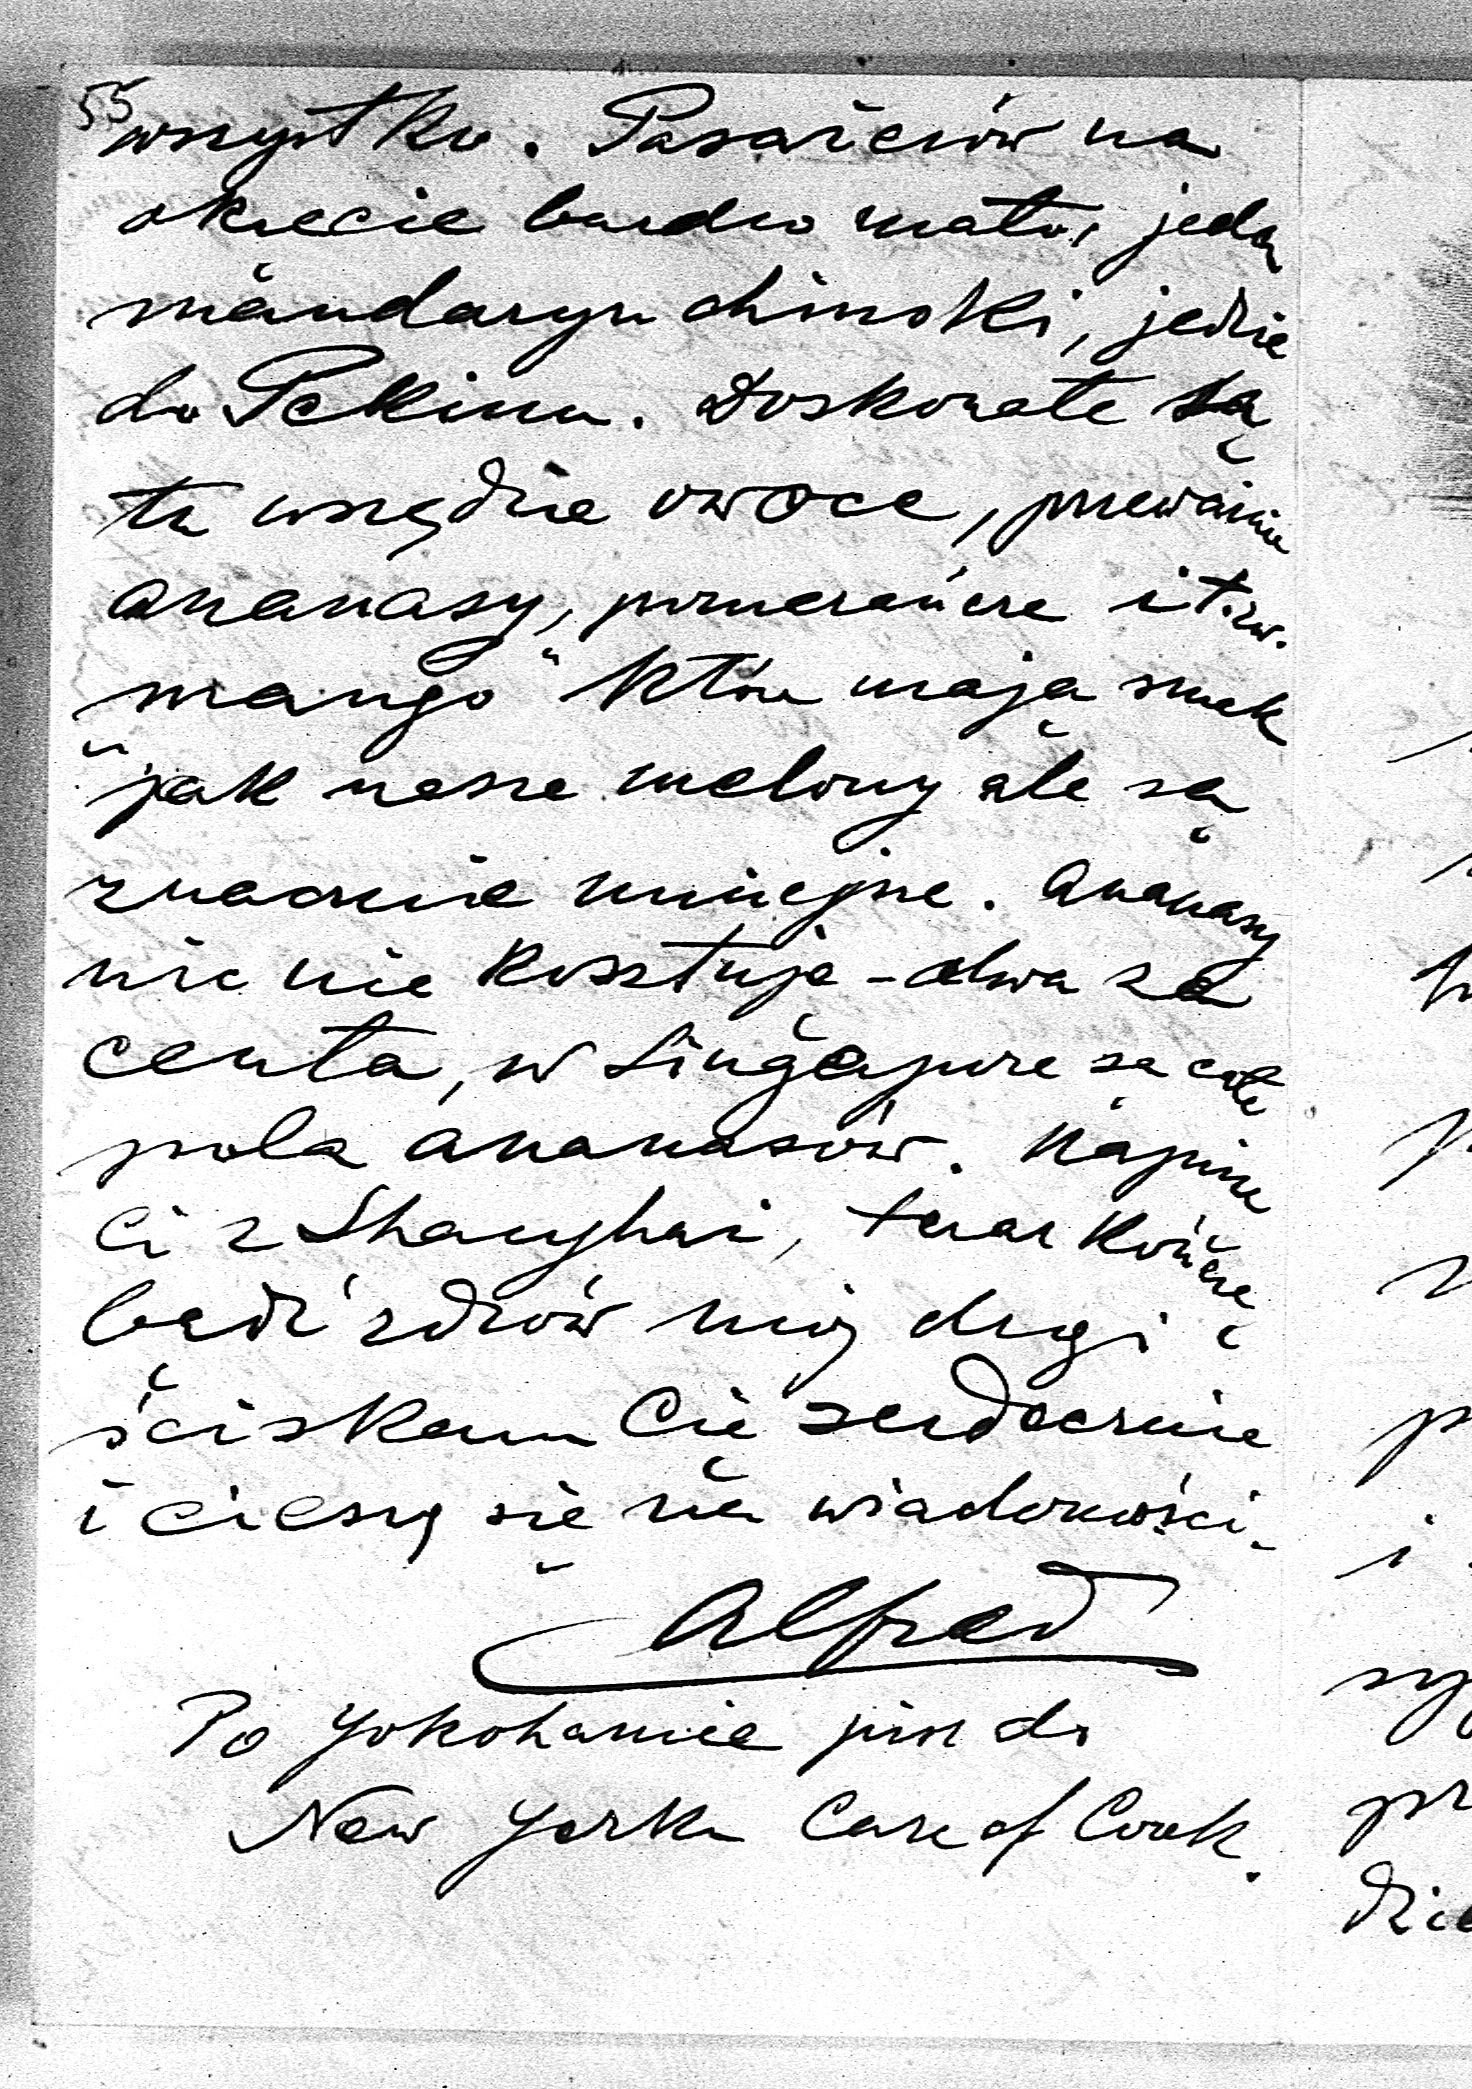 55
wszystko. Pasażerów na
okręcie bardzo mało, jeden
mandaryn chiński, jedzie
do Pekinu. Doskonałe są
tu wszędzie owoce, przeważnie
ananasy, pomarańcze i tzw.
„mango" które mają smak
jak nasze melony ale są
znacznie mniejsze. Ananasy
nic nie kosztują - dwa za
centa, w Singapure są całe
pola ananasów. Napiszę
Ci z Shanghai, teraz kończę
bądź zdrów mój drogi
ściskam Cię serdecznie
i cieszę się na wiadomości.
Alfred
Po Yokohamie pisz do
New Yorku Care of Cook.